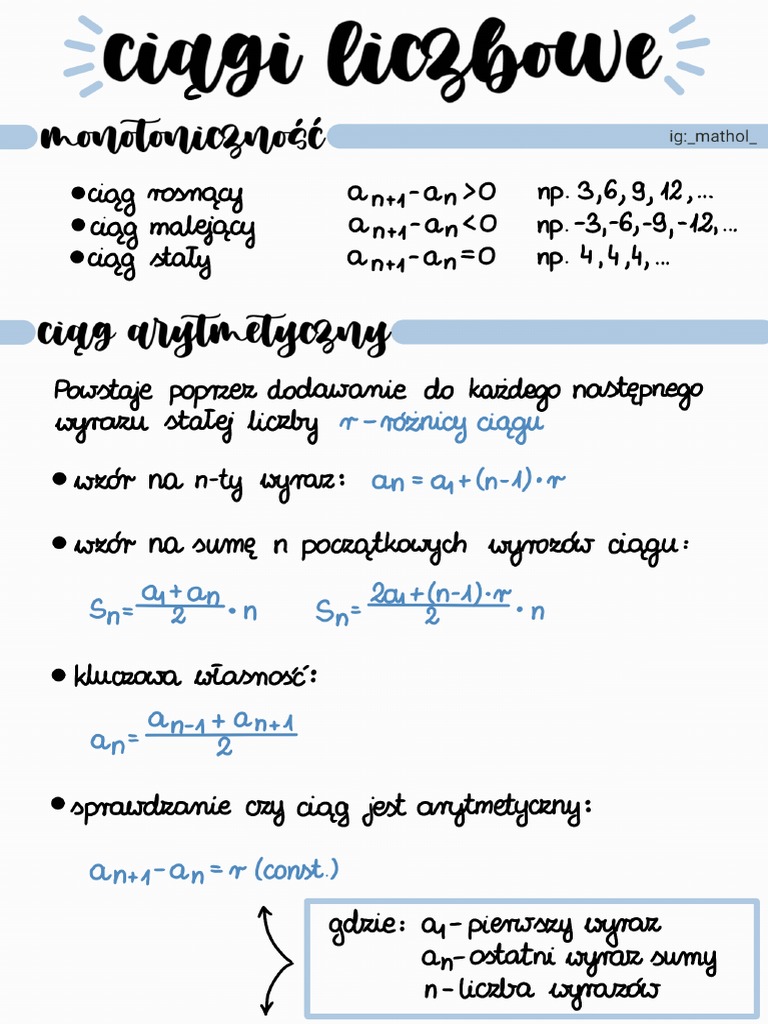 ciągi liczbowe
monotoniczność
ig:_mathol_
•ciąg rosnący aₙ₊₁-aₙ>0 np. 3,6,9,12,...
•ciąg malejący aₙ₊₁-aₙ<0 np. -3,-6,-9,-12,...
•ciąg stały aₙ₊₁-aₙ=0 np. 4,4,4,...
ciąg arytmetyczny
Powstaje poprzez dodawanie do każdego następnego
wyrazu stałej liczby r-różnicy ciągu
•wzór na n-ty wyraz: aₙ=a₁+(n-1)·r
•wzór na sumę n początkowych wyrazów ciągu:
Sₙ=(a₁+aₙ)/2·n Sₙ=(2a₁+(n-1)·r)/2·n
•kluczowa własność:
aₙ=(aₙ₋₁+aₙ₊₁)/2
•sprawdzanie czy ciąg jest arytmetyczny:
aₙ₊₁-aₙ=r (const.)
gdzie: a₁-pierwszy wyraz
aₙ-ostatni wyraz sumy
n-liczba wyrazów